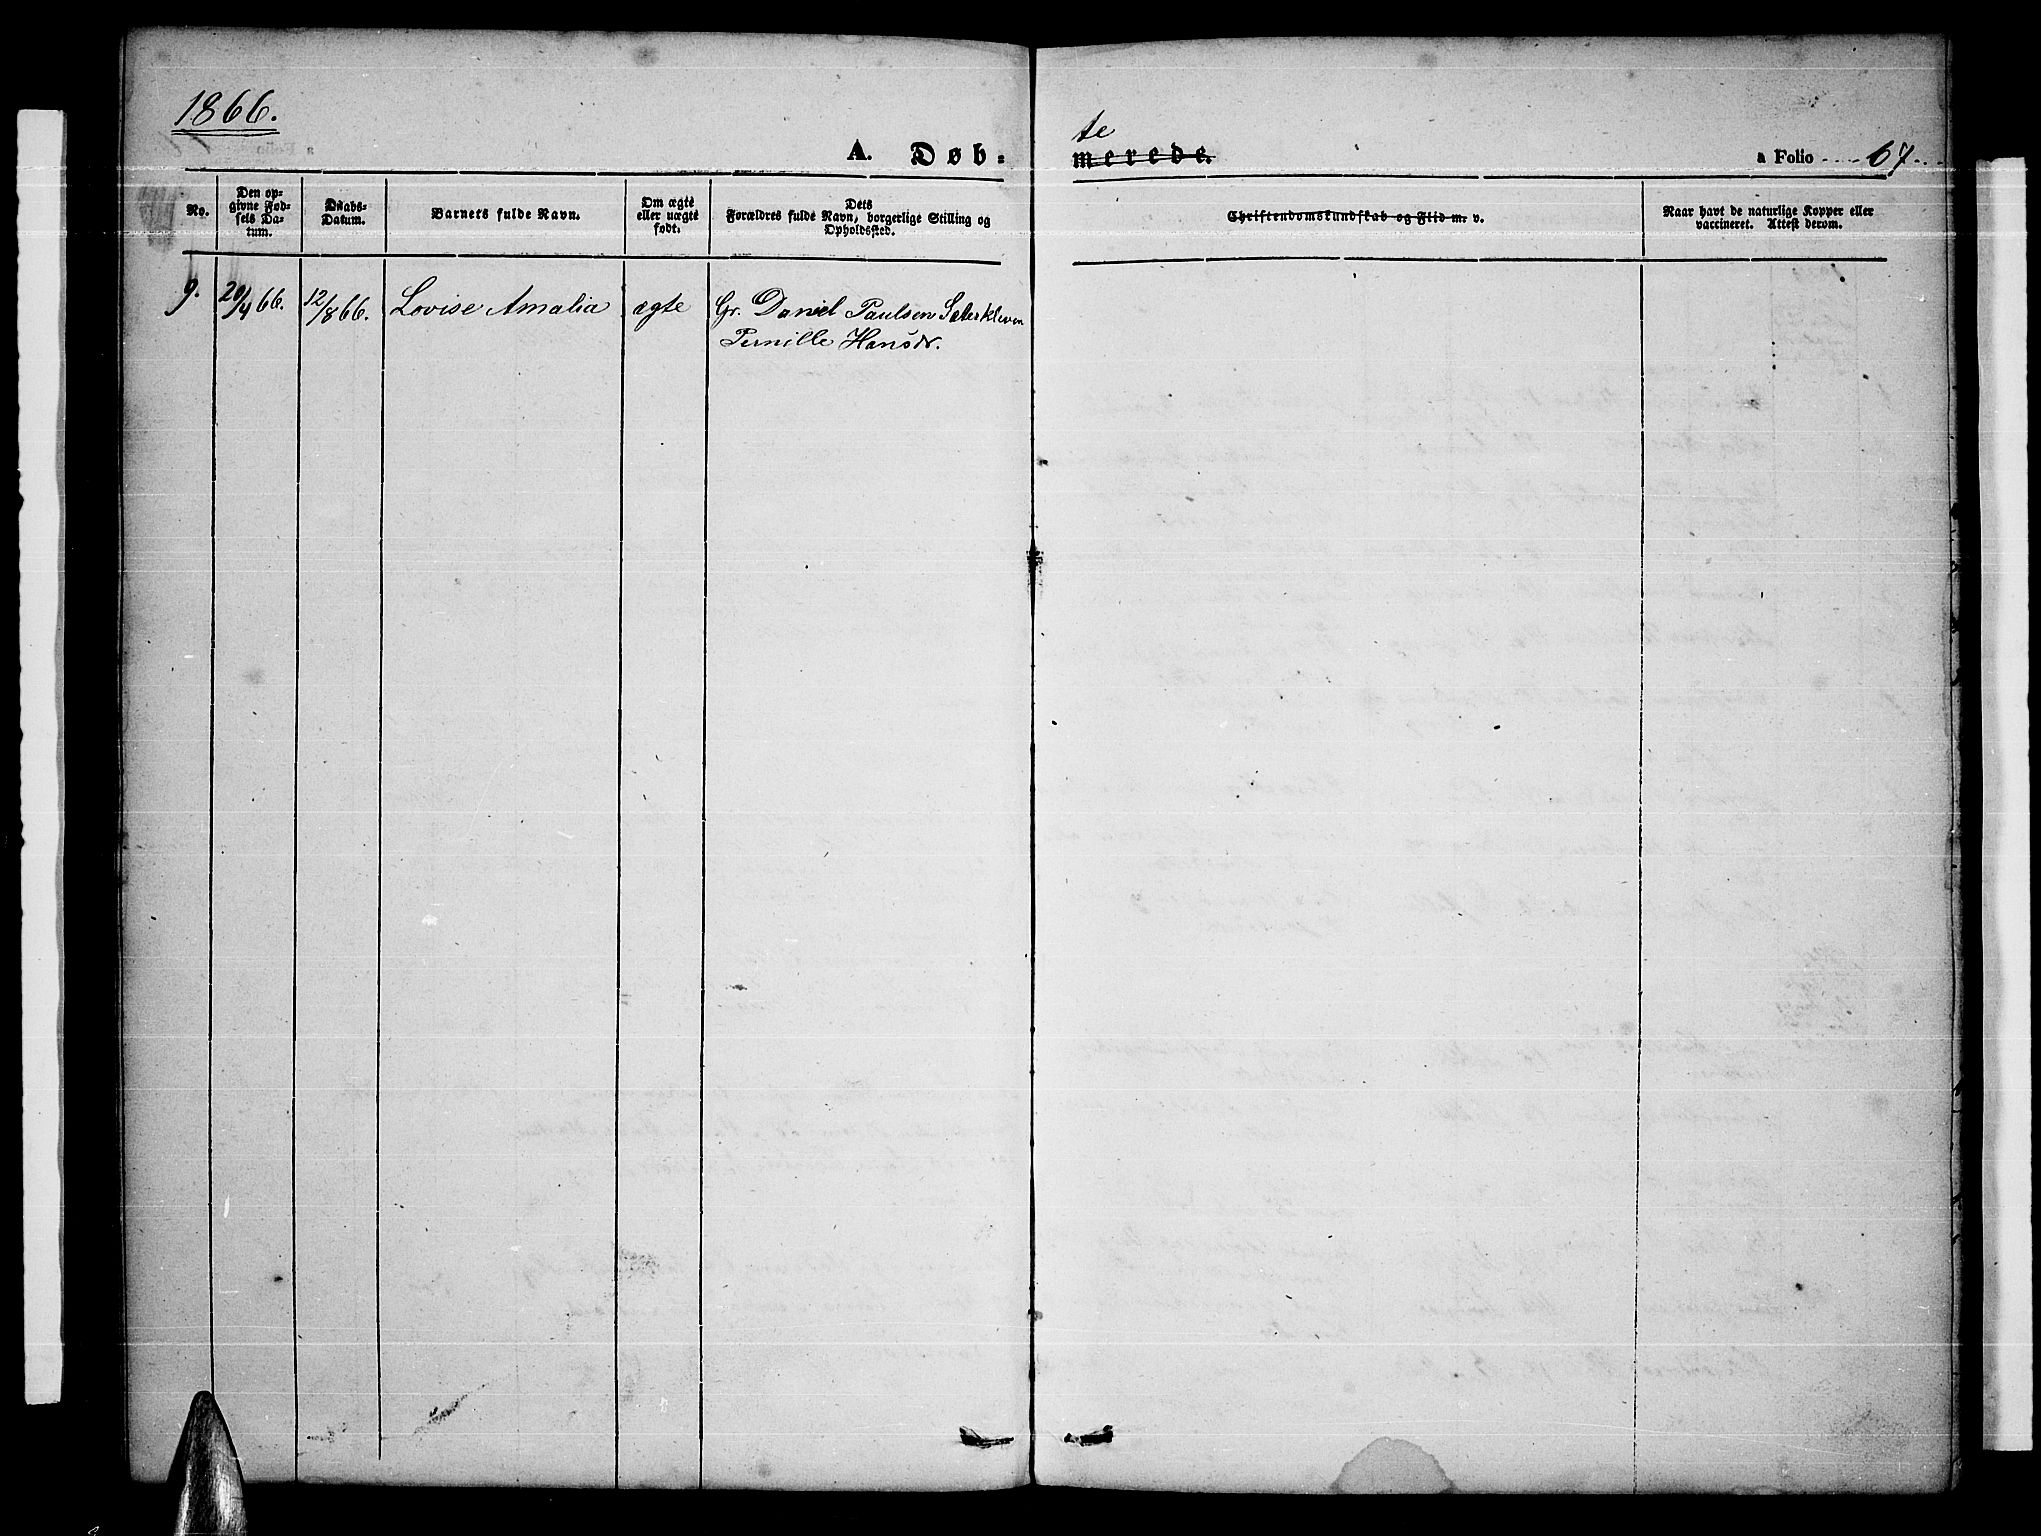 1866.
A. Døb=
te
merede.
a Folio 67.
No.
Den op-
givne Fød-
sels Da-
tum.
Daabs-
Datum.
Barnets fulde Navn.
Om ægte
eller uægte
født.
Dets
Forældres fulde Navn, borgerlige Stilling og
Opholdssted.
Christendomskundskab og Flid m. v.
Naar havt de naturlige Kopper eller
vaccineret. Attest derom.
9. 20/4 66. 12/8 66. Lovise Amalia ægte Gr. Daniel Paulsen Sæterkleven
Pernille Hansdr.